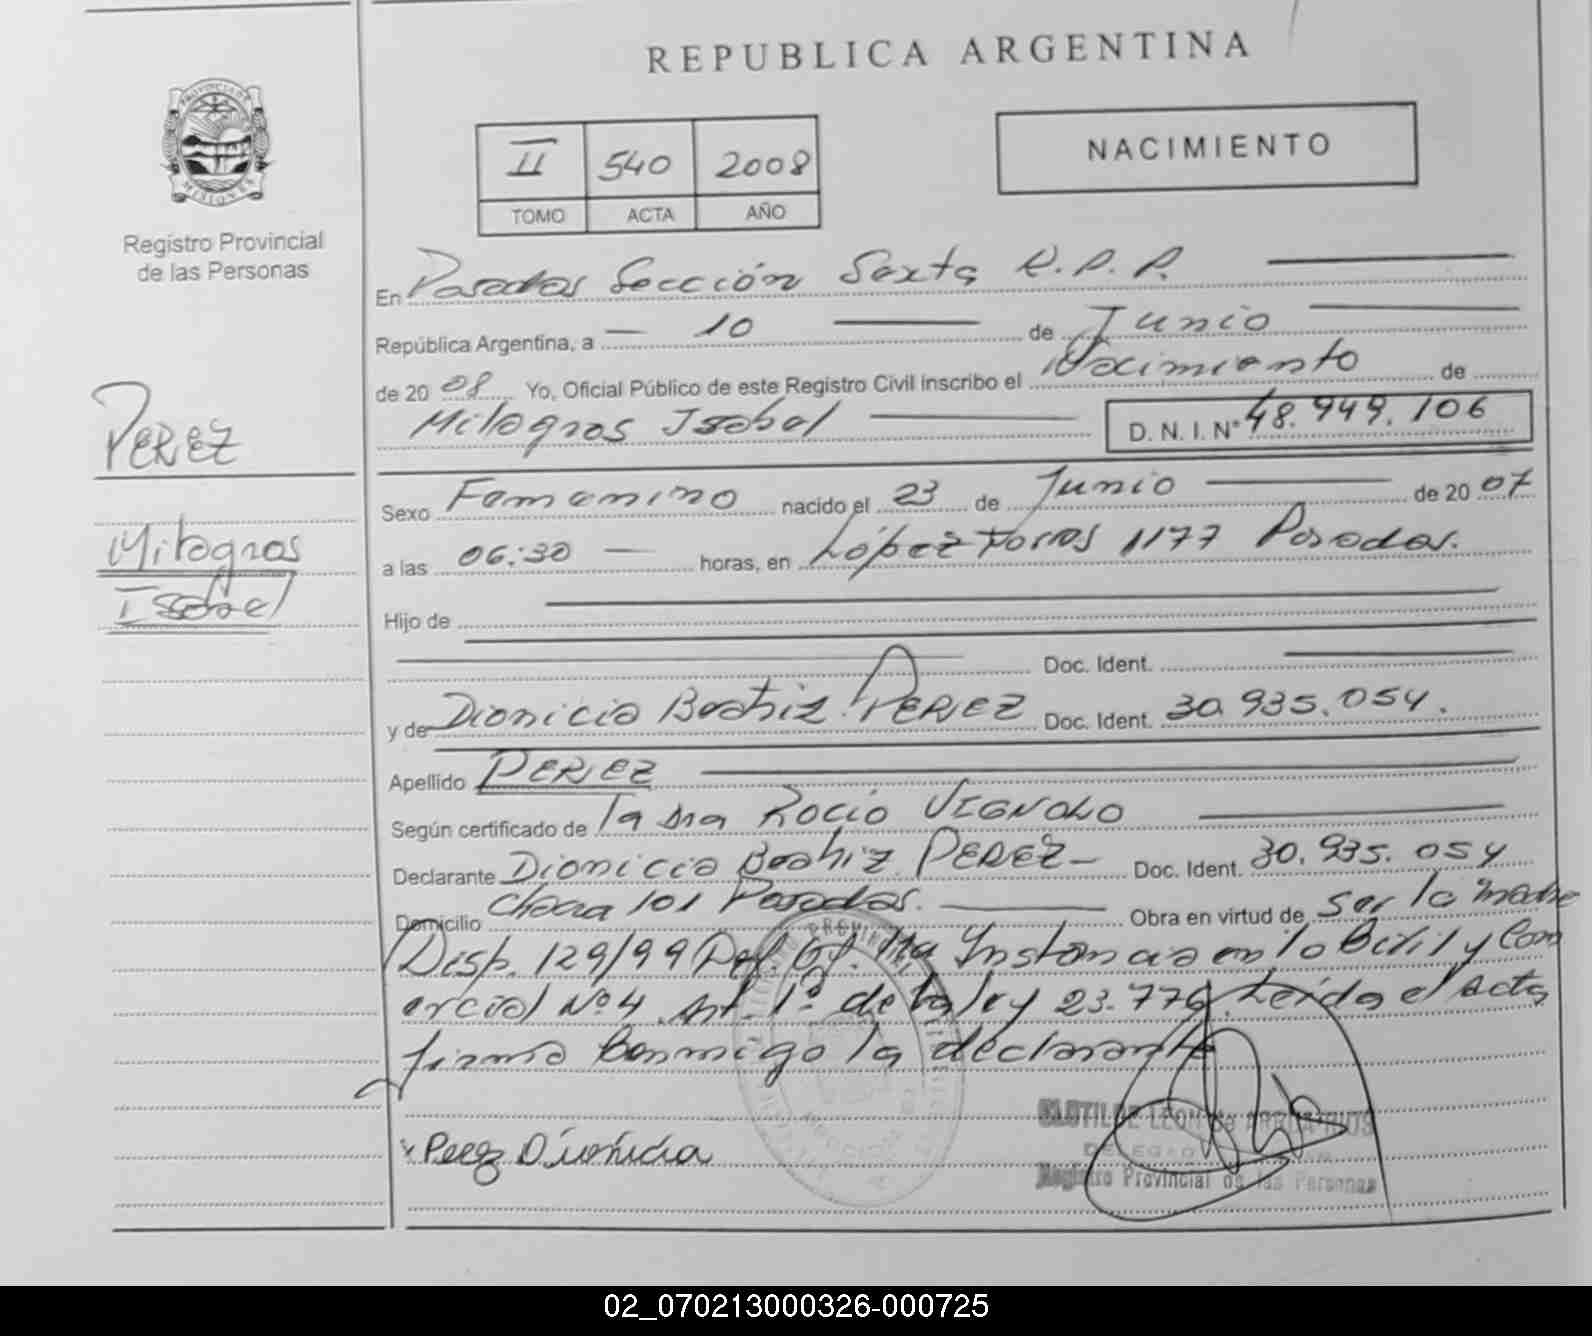 REPUBLICA ARGENTINA
NACIMIENTO
II 540 2008
TOMO ACTA AÑO
PROVINCIA DE
MISIONES
Registro Provincial
de las Personas
PEREZ
Milagros
Isabel
En Posadas Sección Sexta R.P.P.
República Argentina, a 10 de Junio
de 20 08 Yo, Oficial Público de este Registro Civil inscribo el Nacimiento de
Milagros Isabel D. N. I. Nº 48.949.106
Sexo Femenino nacido el 23 de Junio de 20 07
a las 06:30 horas, en López Torres 1177 Posadas.
Hijo de
Doc. Ident.
y de Dionicia Beatriz PEREZ Doc. Ident. 30.935.054.
Apellido PEREZ
Según certificado de la Dra Rocio VIGNOLO
Declarante Dionicia Beatriz PEREZ Doc. Ident. 30.935.054
Domicilio Chacra 101 Posadas. Obra en virtud de ser la madre
Disp. 129/99 Def. Of. 1ra Instancia en lo Civil y Com
ercial Nº 4. Art. 1º de la ley 23.776. Leída el acta
firma conmigo la declarante
Perez Dionicia
CLOTILDE LEON de
Registro Provincial de las Personas
02_070213000326-000725